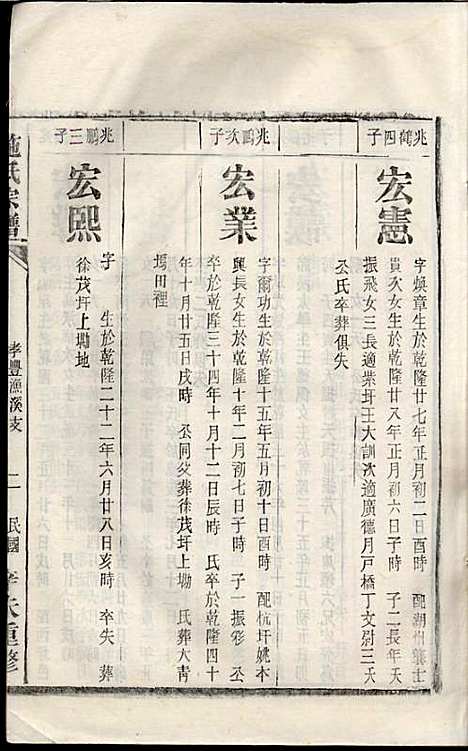 兆鶴四子
宏憲
字煥章生於乾隆廿七年正月初二日酉時　配湖州葉士
貴次女生於乾隆廿八年正月初六日子時　子二長年天
振飛女三長適紫圩王大訓次適廣德月戸橋丁文尉三天
公氏卒葬俱失
兆鵬次子
宏業
字爾功生於乾隆十五年五月初十日酉時　配杭圩姚本
興長女生於乾隆十年二月初七日子時　子一振彩　公
卒於乾隆三十四年十月十二日辰時　氏卒於乾隆四十
年十月廿五日戌時　公同父葬徐茂圩上墈　氏葬大青
塢田裡
兆鵬三子
宏熙
字　生於乾隆二十二年六月廿八日亥時　卒失　葬
徐茂圩上墈地
施氏宗譜
孝豐漁溪支
二
民國
重修